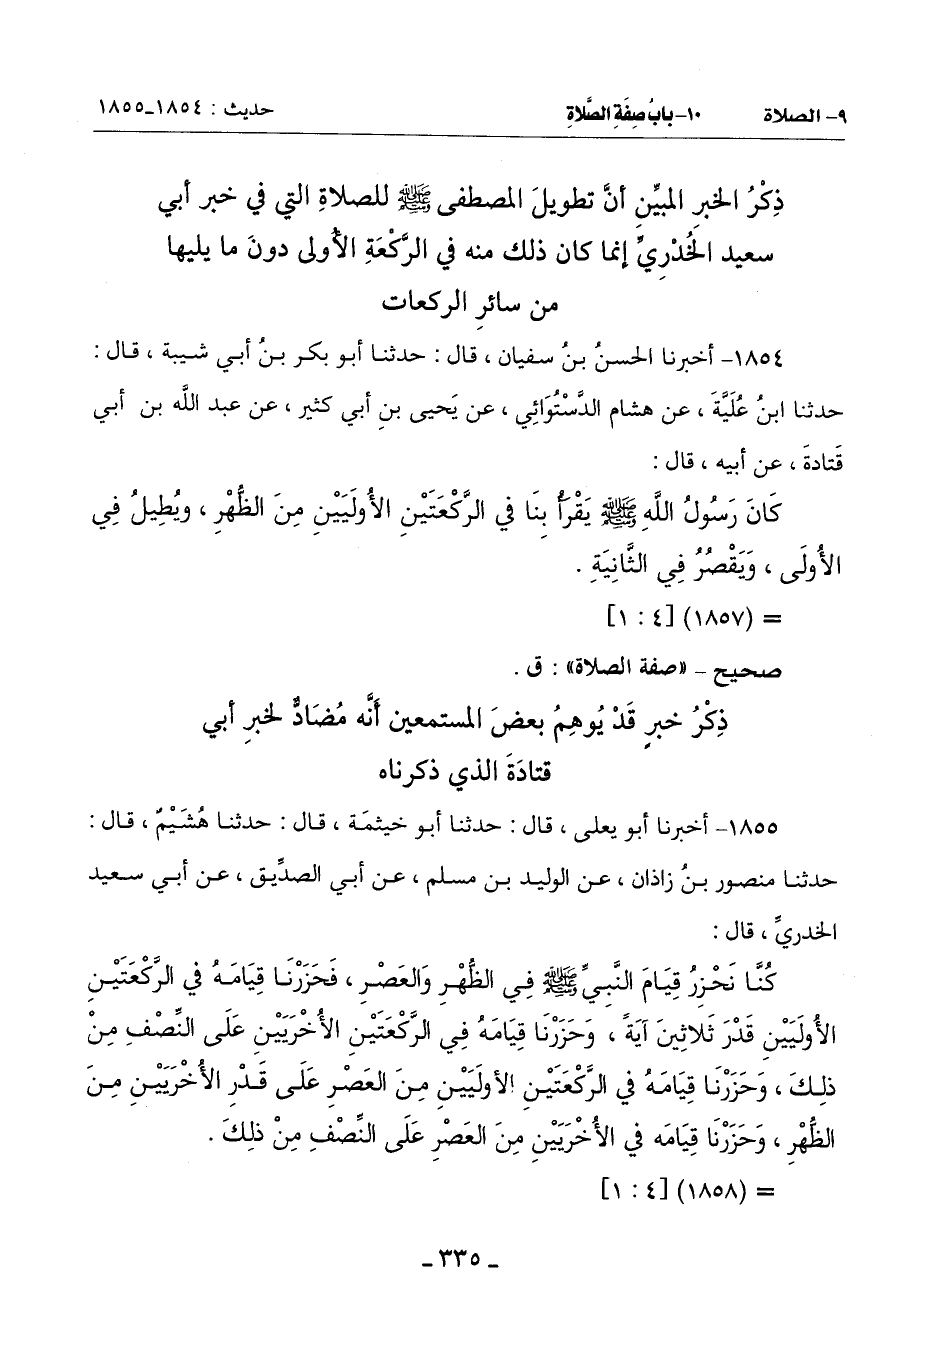 ٩- الصلاة ١٠- بابُ صِفَةِ الصَّلاةِ حديث : ١٨٥٤-١٨٥٥
ذِكْرُ الخبرِ المبيِّنِ أنَّ تطويلَ المصطفى ﷺ للصلاةِ التي في خبر أبي
سعيد الخُدْريِّ إنما كان ذلك منه في الرَّكْعَةِ الأُولى دونَ ما يليها
من سائرِ الركعات
١٨٥٤- أخبرنا الحسنُ بنُ سفيان ، قال : حدثنا أبو بكر بنُ أبي شيبة ، قال :
حدثنا ابنُ عُلَيَّةَ ، عن هشام الدَّسْتُوَائِي ، عن يَحيى بنِ أبي كثير ، عن عبد اللَّه بن أبي
قَتادةَ ، عن أبيه ، قال :
كَانَ رَسُولُ اللَّهِ ﷺ يَقْرَأُ بنَا في الرَّكْعَتَيْنِ الأُولَيَيْنِ مِنَ الظُّهْرِ ، ويُطِيلُ فِي
الأُولَى ، وَيَقْصُرُ فِي الثَّانِيَةِ .
= (١٨٥٧) [٤ : ١]
صحيح - «صفة الصلاة» : ق .
ذِكْرُ خبرٍ قَدْ يُوهِمُ بعضَ المستمعين أَنَّه مُضَادٌّ لخبرِ أبي
قتادَةَ الذي ذكرناه
١٨٥٥- أخبرنا أبو يعلى ، قال : حدثنا أبو خيثمَة ، قال : حدثنا هُشَيْمٌ ، قال :
حدثنا منصور بنُ زاذان ، عن الوليد بن مسلم ، عن أبي الصدِّيق ، عن أبي سعيد
الخدريِّ ، قال :
كُنَّا نَحْزِرُ قِيَامَ النَّبيِّ ﷺ فِي الظُّهْرِ وَالعَصْرِ ، فَحَزَرْنَا قِيَامَهُ فِي الرَّكْعَتَيْنِ
الأُولَيَيْنِ قَدْرَ ثَلاثِينَ آيَةً ، وَحَزَرْنَا قِيَامَهُ فِي الرَّكْعَتَيْنِ الأُخْرَيَيْنِ عَلَى النِّصْفِ مِنْ
ذلِكَ ، وَحَزَرْنَا قِيَامَهُ فِي الرَّكْعَتَيْنِ الأولَيَيْنِ مِنَ العَصْرِ عَلَى قَدْرِ الأُخْرَيَيْنِ مِنَ
الظُّهْرِ ، وَحَزَرْنَا قِيَامَه فِي الأُخْرَيَيْنِ مِنَ العَصْرِ عَلَى النِّصْفِ مِنْ ذلِكَ .
= (١٨٥٨) [٤ : ١]
- ٣٣٥ -